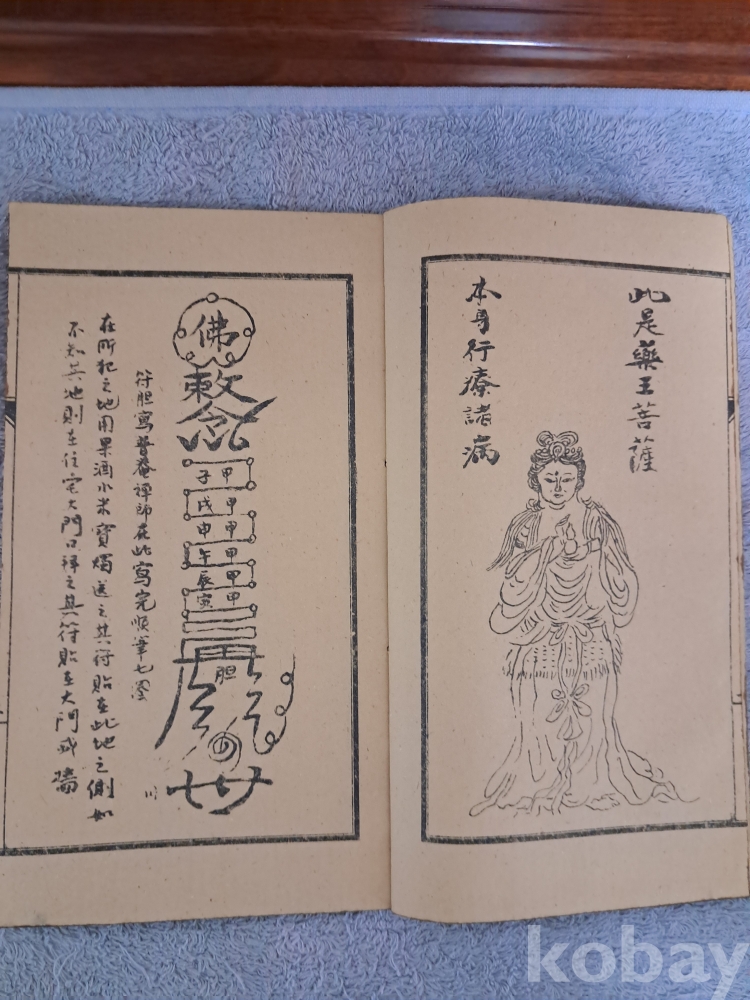 此是藥王菩薩
本身行療諸病
佛
敕令
甲子
甲戌
甲申
甲午
甲辰
甲寅
胆
符胆寫普菴禪師在此寫完順筆七圈
在所犯之地用果酒小米寶燭送之其符貼在此地之側如
不知其地則在住宅大門口禅之其符貼在大門或墻
kobay